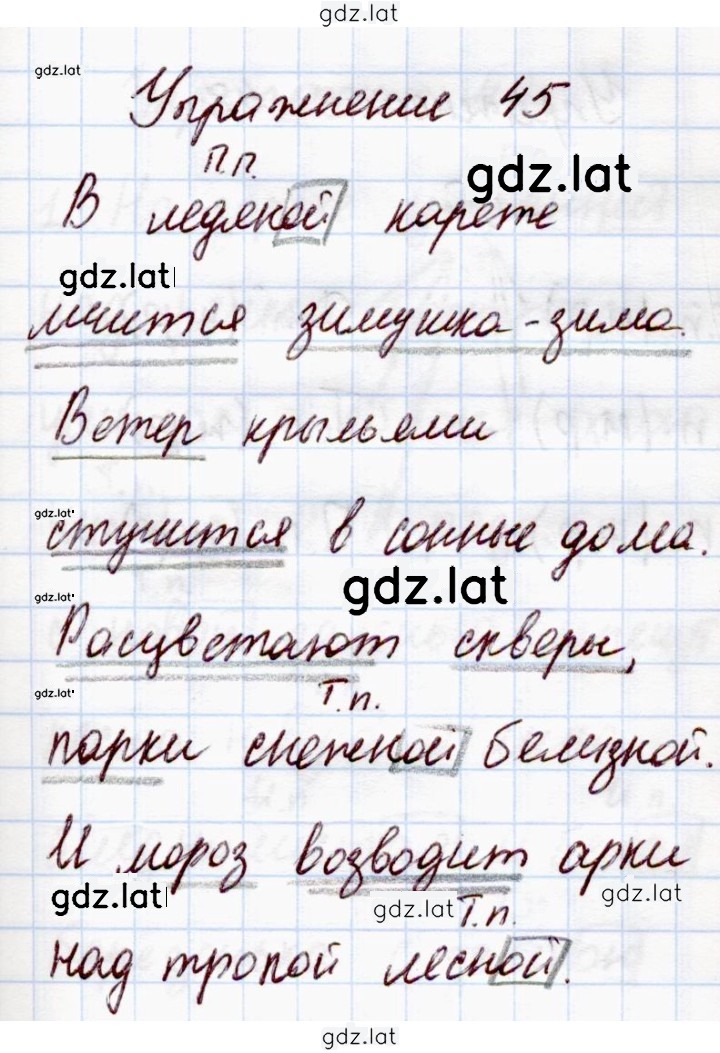 gdz.lat
gdz.lat
Упражнение 45
П.п. gdz.lat
В ледяной карете
gdz.lat
мчится зимушка-зима.
Ветер крыльями
gdz.lat
стучится в сонные дома.
gdz.lat gdz.lat
Расцветают скверы,
gdz.lat Т.п.
парки снежной белизной.
И мороз возводит арки
gdz.lat gdz.lat Т.п. gdz.lat
над тропой лесной.
gdz.lat